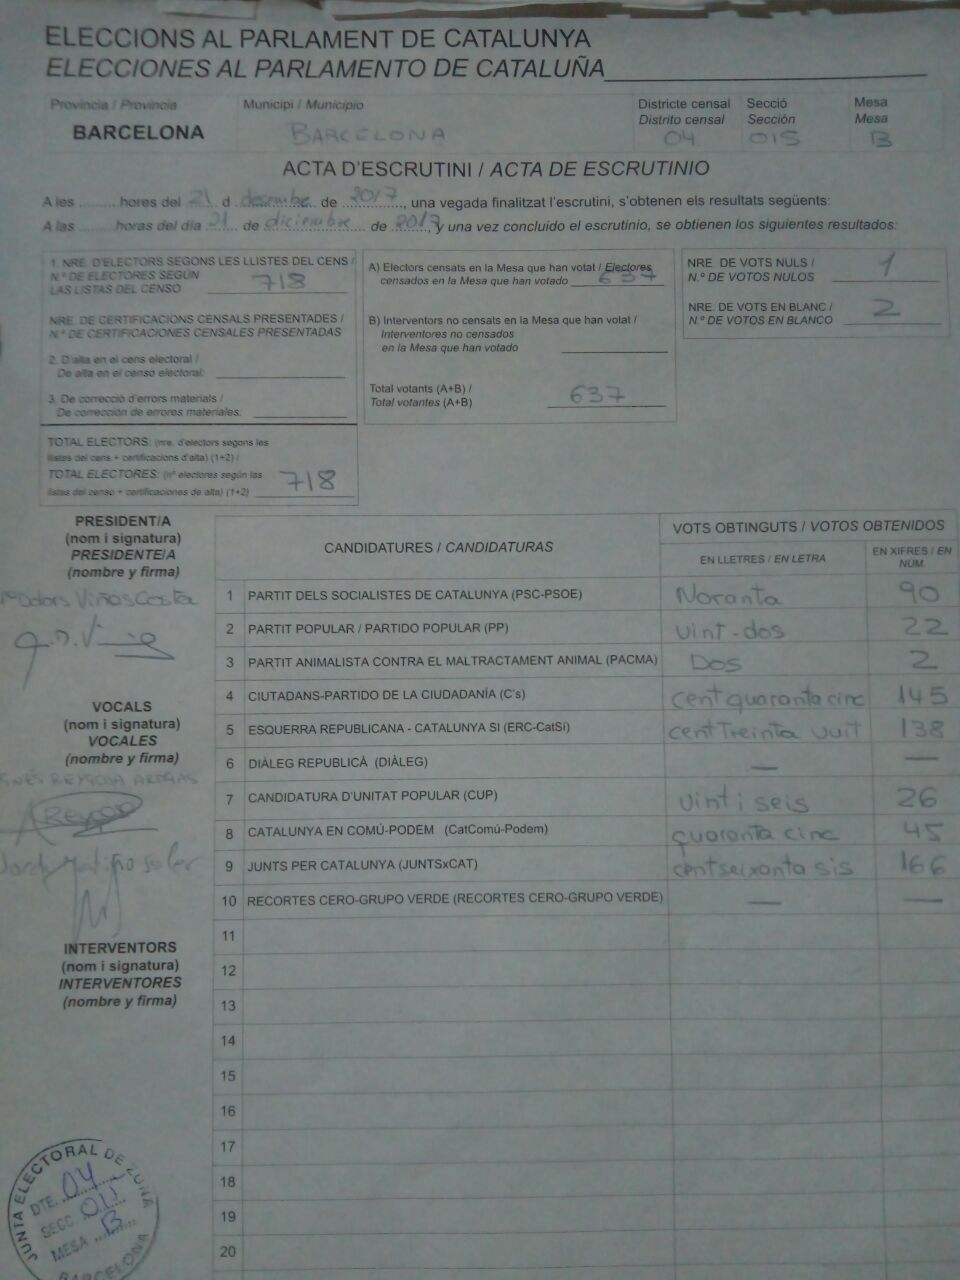 ELECCIONS AL PARLAMENT DE CATALUNYA
ELECCIONES AL PARLAMENTO DE CATALUÑA
Provincia / Provincia Municipi / Municipio Districte censal Secció Mesa
Distrito censal Sección Mesa
BARCELONA BARCELONA 04 015 B
ACTA D'ESCRUTINI / ACTA DE ESCRUTINIO
A les ........ hores del 21 d desembre de 2017, una vegada finalitzat l'escrutini, s'obtenen els resultats següents:
A las ........ horas del día 21 de diciembre de 2017, y una vez concluido el escrutinio, se obtienen los siguientes resultados:
1. NRE. D'ELECTORS SEGONS LES LLISTES DEL CENS /
N.º DE ELECTORES SEGÚN
LAS LISTAS DEL CENSO 718
NRE. DE CERTIFICACIONS CENSALS PRESENTADES /
N.º DE CERTIFICACIONES CENSALES PRESENTADAS
2. D'alta en el cens electoral /
De alta en el censo electoral:
3. De correcció d'errors materials /
De corrección de errores materiales:
TOTAL ELECTORS: (nre. d'electors segons les
llistes del cens + certificacions d'alta) (1+2) /
TOTAL ELECTORES: (nº electores según las
listas del censo + certificaciones de alta) (1+2) 718
A) Electors censats en la Mesa que han votat / Electores
censados en la Mesa que han votado 637
B) Interventors no censats en la Mesa que han votat /
Interventores no censados
en la Mesa que han votado
Total votants (A+B) /
Total votantes (A+B) 637
NRE. DE VOTS NULS /
N.º DE VOTOS NULOS 1
NRE. DE VOTS EN BLANC /
N.º DE VOTOS EN BLANCO 2
PRESIDENT/A
(nom i signatura)
PRESIDENTE/A
(nombre y firma)
Mª Dolors Viñas Costa
VOCALS
(nom i signatura)
VOCALES
(nombre y firma)
INTERVENTORS
(nom i signatura)
INTERVENTORES
(nombre y firma)
CANDIDATURES / CANDIDATURAS VOTS OBTINGUTS / VOTOS OBTENIDOS
EN LLETRES / EN LETRA EN XIFRES / EN NUM.
1 PARTIT DELS SOCIALISTES DE CATALUNYA (PSC-PSOE) Noranta 90
2 PARTIT POPULAR / PARTIDO POPULAR (PP) vint-dos 22
3 PARTIT ANIMALISTA CONTRA EL MALTRACTAMENT ANIMAL (PACMA) Dos 2
4 CIUTADANS-PARTIDO DE LA CIUDADANÍA (C's) cent quaranta cinc 145
5 ESQUERRA REPUBLICANA - CATALUNYA SI (ERC-CatSí) cent Treinta vuit 138
6 DIÀLEG REPUBLICÀ (DIÀLEG) — —
7 CANDIDATURA D'UNITAT POPULAR (CUP) vint i seis 26
8 CATALUNYA EN COMÚ-PODEM (CatComú-Podem) quaranta cinc 45
9 JUNTS PER CATALUNYA (JUNTSxCAT) cent seixanta sis 166
10 RECORTES CERO-GRUPO VERDE (RECORTES CERO-GRUPO VERDE) — —
11
12
13
14
15
16
17
18
19
20
JUNTA ELECTORAL DE ZONA
DTE. 04
SECC.
MESA B
BARCELONA